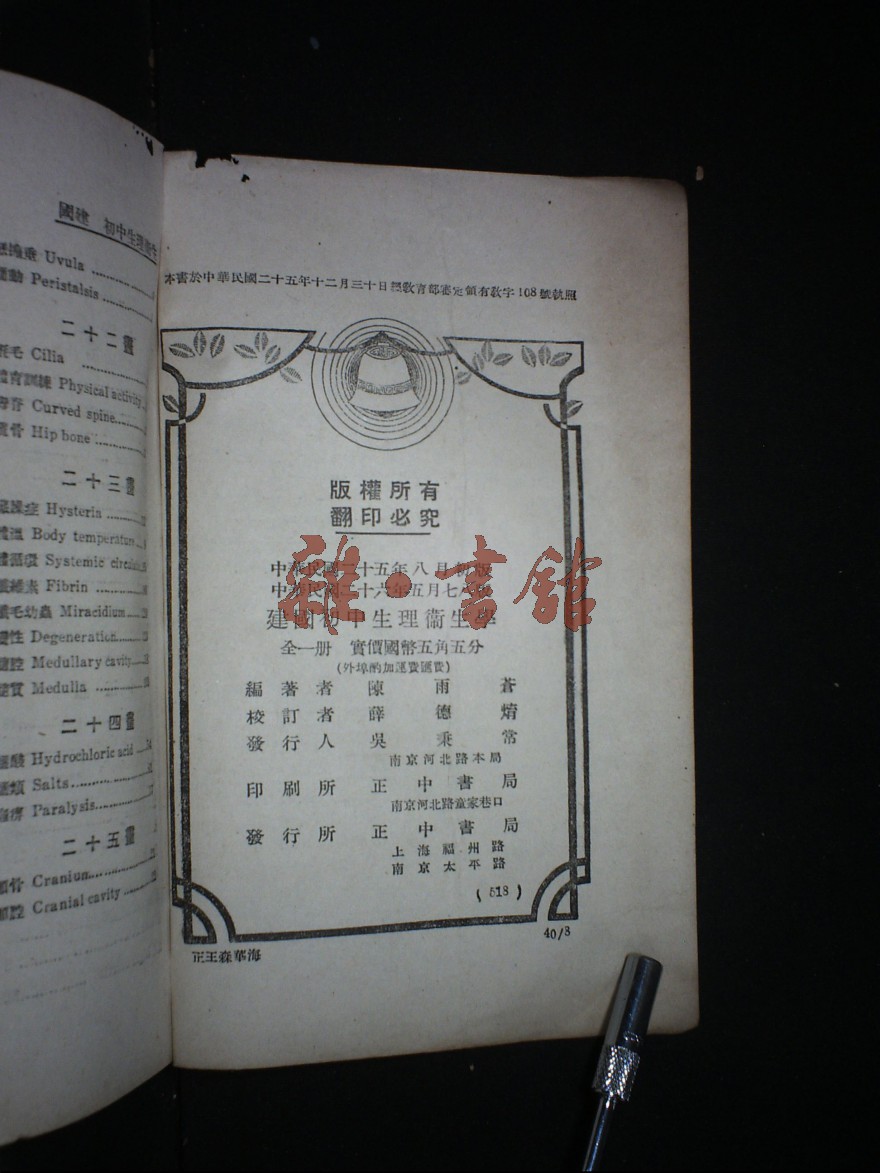 國建 初中生理衞生
垂 Uvula
動 Peristalsis
二十二畫
毛 Cilia
體育訓練 Physical activity
脊 Curved spine
骨 Hip bone
二十三畫
症 Hysteria
體溫 Body temperature
體循環 Systemic
纖維素 Fibrin
纖毛幼蟲 Miracidium
變性 Degeneration
髓腔 Medullary cavity
髓質 Medulla
二十四畫
鹽酸 Hydrochloric acid
鹽類 Salts
Paralysis
二十五畫
顱骨 Cranium
顱腔 Cranial cavity
本書於中華民國二十五年十二月三十日經教育部審定領有教字108號執照
版權所有
翻印必究
中華民國二十五年八月初版
中華民國二十六年五月七八版
建國初中生理衞生學
全一册 實價國幣五角五分
(外埠酌加運費匯費)
編著者 陳雨蒼
校訂者 薛德焴
發行人 吳秉常
南京河北路本局
印刷所 正中書局
南京河北路童家巷口
發行所 正中書局
上海福州路
南京太平路
(518)
40/3
正王森華海
雜·書館